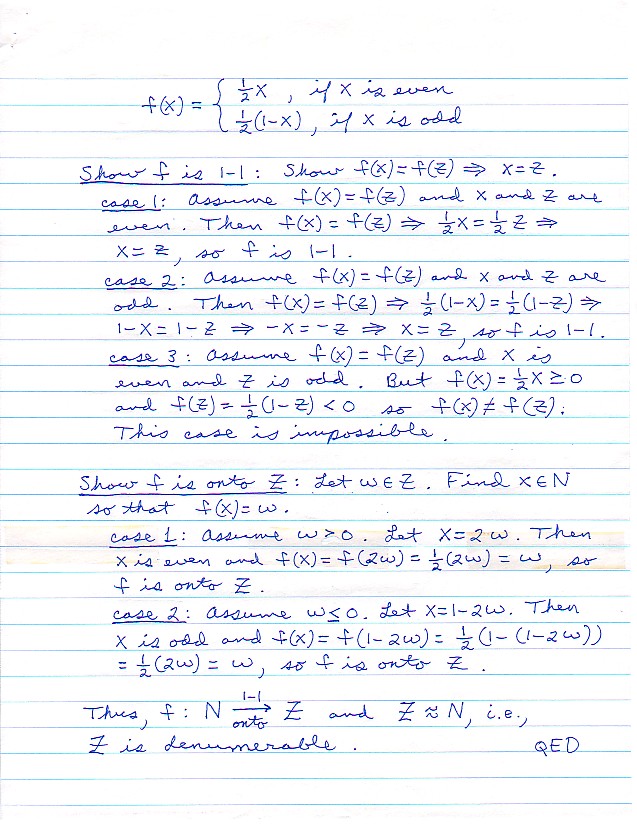 f(x) = { ½x , if x is even
½(1-x) , if x is odd
Show f is 1-1 : Show f(x) = f(z) ⇒ x = z .
case 1 : Assume f(x) = f(z) and x and z are
even . Then f(x) = f(z) ⇒ ½x = ½z ⇒
x = z , so f is 1-1 .
case 2 : Assume f(x) = f(z) and x and z are
odd . Then f(x) = f(z) ⇒ ½(1-x) = ½(1-z) ⇒
1-x = 1-z ⇒ -x = -z ⇒ x = z , so f is 1-1 .
case 3 : Assume f(x) = f(z) and x is
even and z is odd . But f(x) = ½x ≥ 0
and f(z) = ½(1-z) < 0 so f(x) ≠ f(z) .
This case is impossible .
Show f is onto Z : Let w ∈ Z . Find x ∈ N
so that f(x) = w .
case 1 : Assume w > 0 . Let x = 2w . Then
x is even and f(x) = f(2w) = ½(2w) = w , so
f is onto Z .
case 2 : Assume w ≤ 0 . Let x = 1-2w . Then
x is odd and f(x) = f(1-2w) = ½(1-(1-2w))
= ½(2w) = w , so f is onto Z .
Thus , f : N 1-1⟶onto Z and Z ≈ N , i.e. ,
Z is denumerable . QED